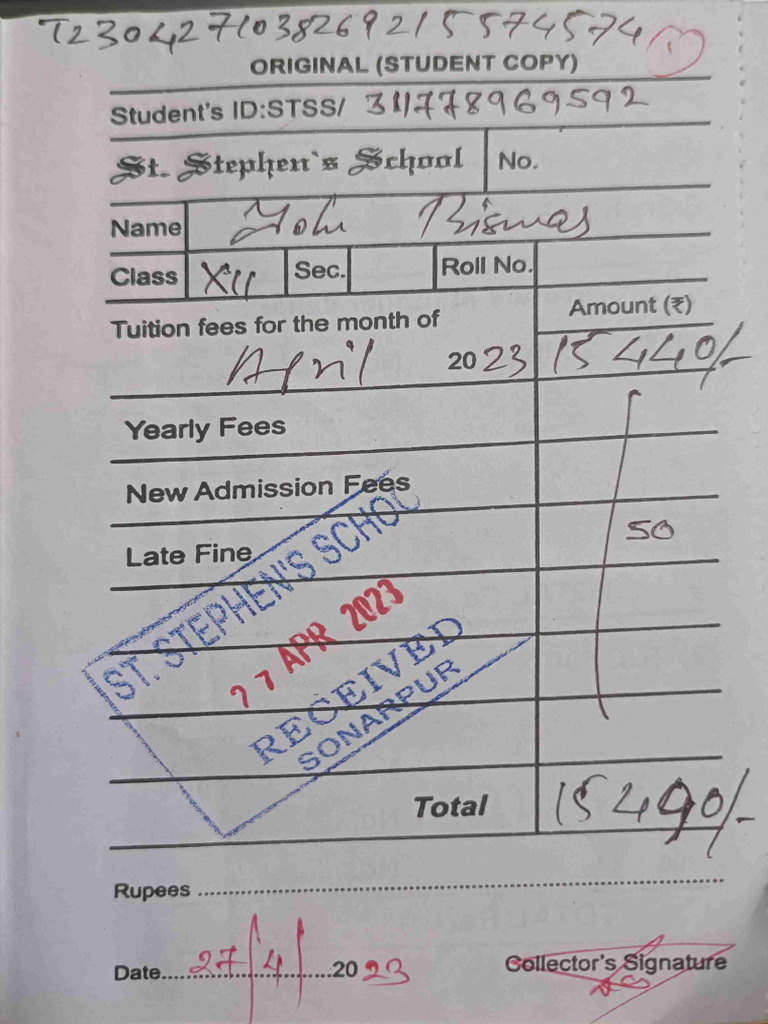 T2304271038269215574574
1
ORIGINAL (STUDENT COPY)
Student's ID:STSS/ 311778969592
St. Stephen's School No.
Name John Biswas
Class XII Sec. Roll No.
Tuition fees for the month of Amount (₹)
April 2023 15440/-
Yearly Fees
New Admission Fees
Late Fine 50
ST. STEPHEN'S SCHOOL
27 APR 2023
RECEIVED
SONARPUR
Total 15490/-
Rupees
Date 27/4/2023 Collector's Signature